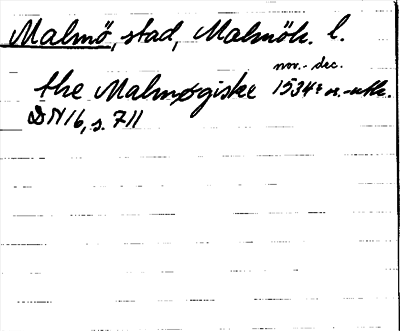 Malmö, stad, Malmöh. l.
nov.- dec.
the Malmøgiske 1534
DN 16, s. 711